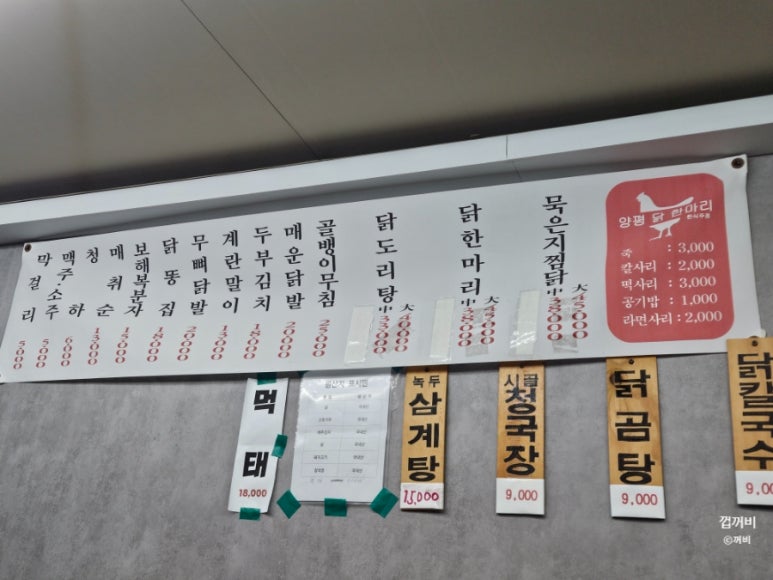 막걸리 5000
맥주·소주 5000
청하 6000
매취순 13000
보해복분자 15000
닭똥집 18000
무뼈닭발 20000
계란말이 15000
두부김치 18000
매운닭발 20000
골뱅이무침 25000
닭도리탕 大40000 中33000
닭한마리 大 中38000
묵은지찜닭 大45000 中38000
양평 닭 한마리
한식주점
죽 : 3,000
칼사리 : 2,000
떡사리 : 3,000
공기밥 : 1,000
라면사리 : 2,000
먹태
18,000
원산지 표시판
녹두
삼계탕
15,000
시골
청국장
9,000
닭곰탕
9,000
닭칼국수
껍꺼비
©꺼비